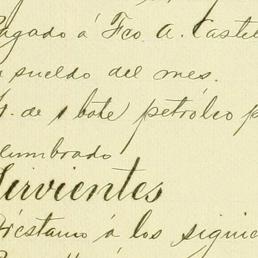 Pagado á Fco A. Castel
sueldo del mes.
de 1 bote petróleo p
lumbrado
Sirvientes
Préstamo á los siguie